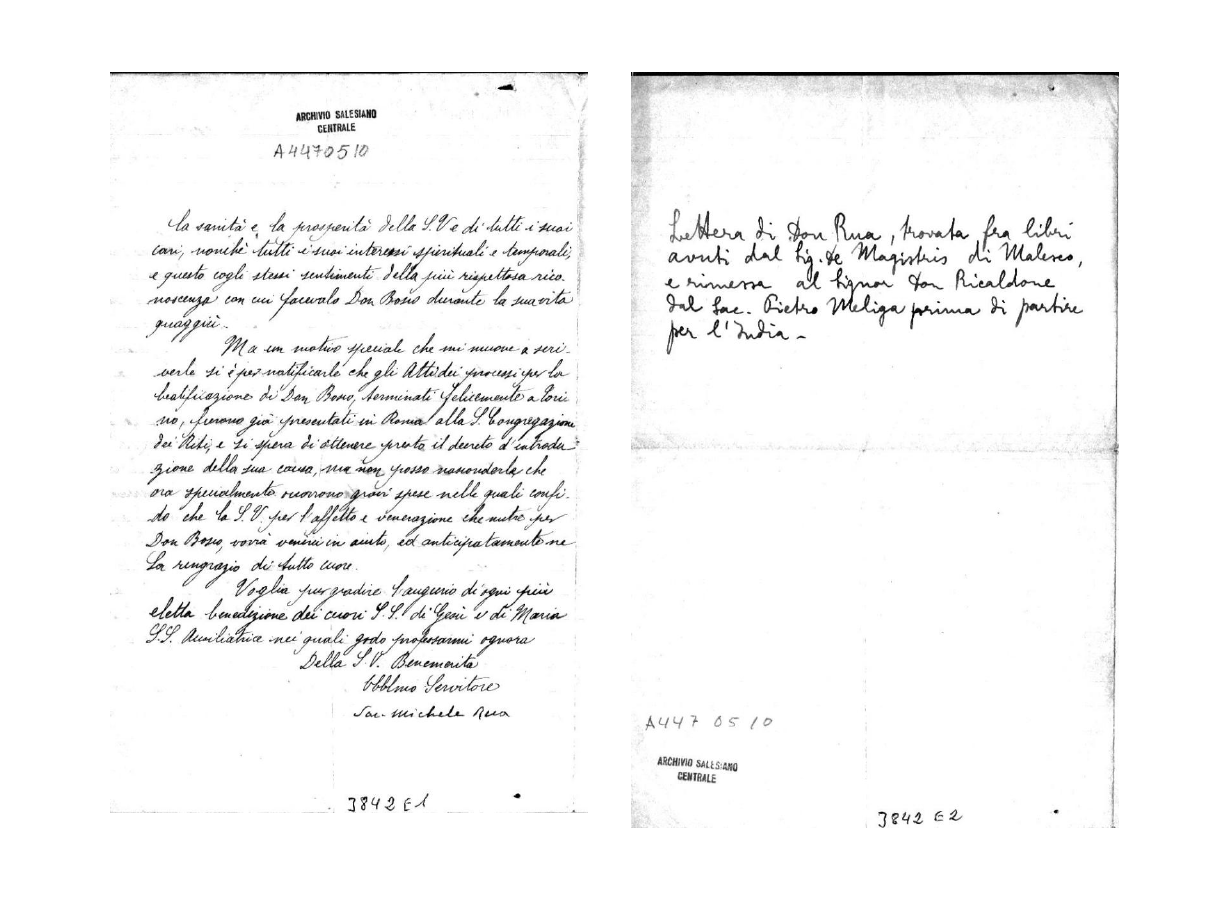 ARCHIVIO SALESIANO
CENTRALE
A4470510
la sanità e la prosperità della S.V e di tutti i suoi
cari, nonchè tutti i suoi interessi spirituali e temporali,
e questo cogli stessi sentimenti della più rispettosa rico
noscenza con cui facevalo Don Bosco durante la sua vita
quaggiù.
Ma un motivo speciale che mi muove a scri-
verle si è per notificarle che gli Atti dei processi per la
beatificazione di Don Bosco, terminati felicemente a Tori
no, furono già presentati in Roma alla S. Congregazione
dei Riti, e si spera di ottenere presto il decreto d'introdu
zione della sua causa, ma non posso nasconderle che
ora specialmente occorrono gravi spese nelle quali confi-
do che la S.V. per l'affetto e venerazione che nutre per
Don Bosco, vorrà venirci in aiuto, ed anticipatamente ne
La ringrazio di tutto cuore.
Voglia pur gradire l'augurio di ogni più
eletta benedizione dei cuori S.S. di Gesù e di Maria
S.S. Ausiliatrice nei quali godo professarmi ognora
Della S.V. Benemerita
Obblmo Servitore
Sac. Michele Rua
3842 E1
Lettera di Don Rua, trovata fra libri
avuti dal Sig. De Magistris di Malesco,
e rimessa al Signor Don Ricaldone
dal Sac. Pietro Meliga prima di partire
per l'India -
A447 05 10
ARCHIVIO SALESIANO
CENTRALE
3842 E2